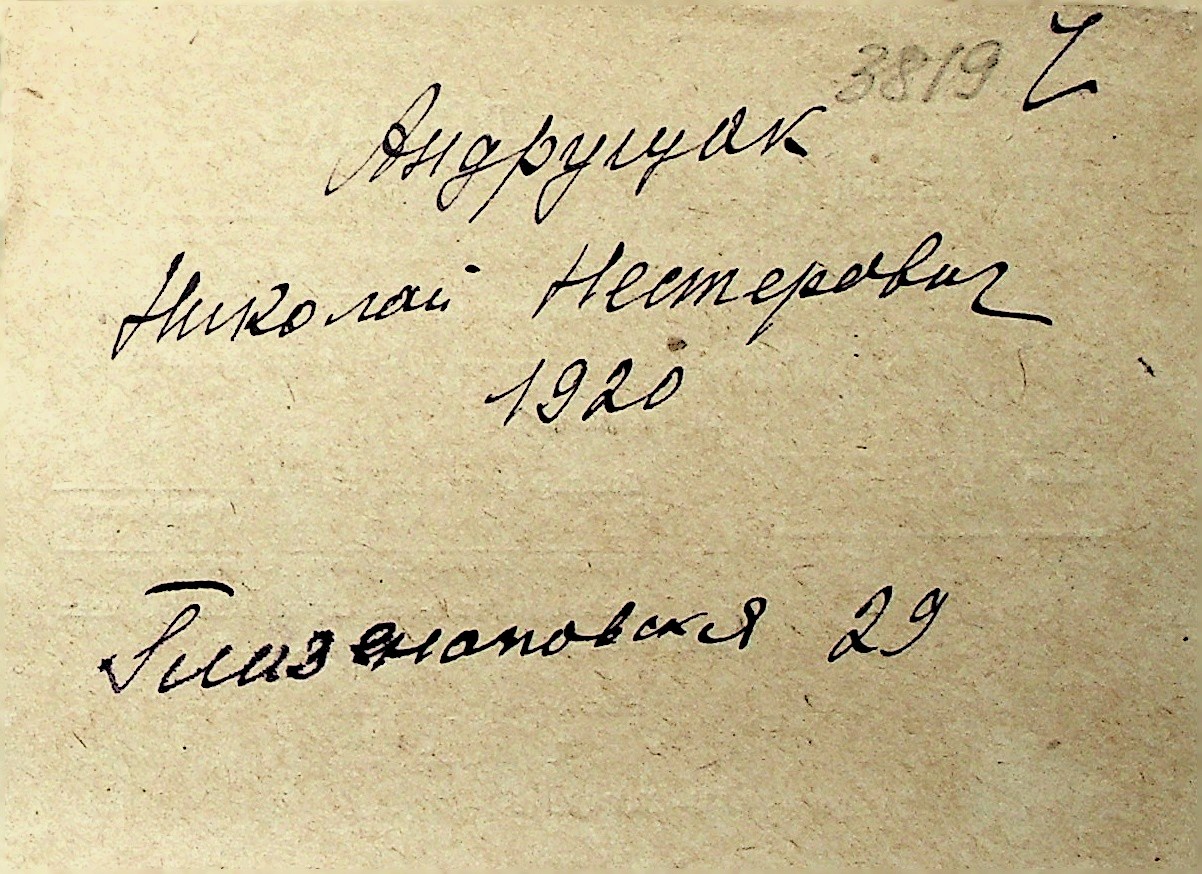 3819 Ч
Андрущак
Николай Нестерович
1920
29